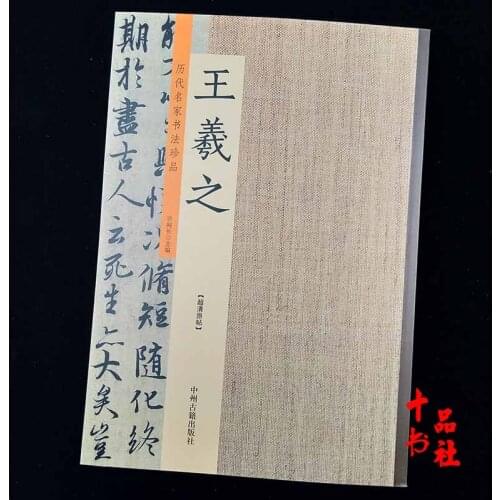 王羲之
历代名家书法珍品
【超清原帖】
中州古籍出版社
脩短随化终
期於盡古人云死生亦大矣豈
十品书社